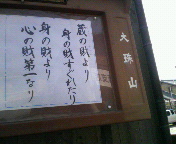 大珠山
蔵の財より
身の財すぐれたり
身の財より
心の財第一なり